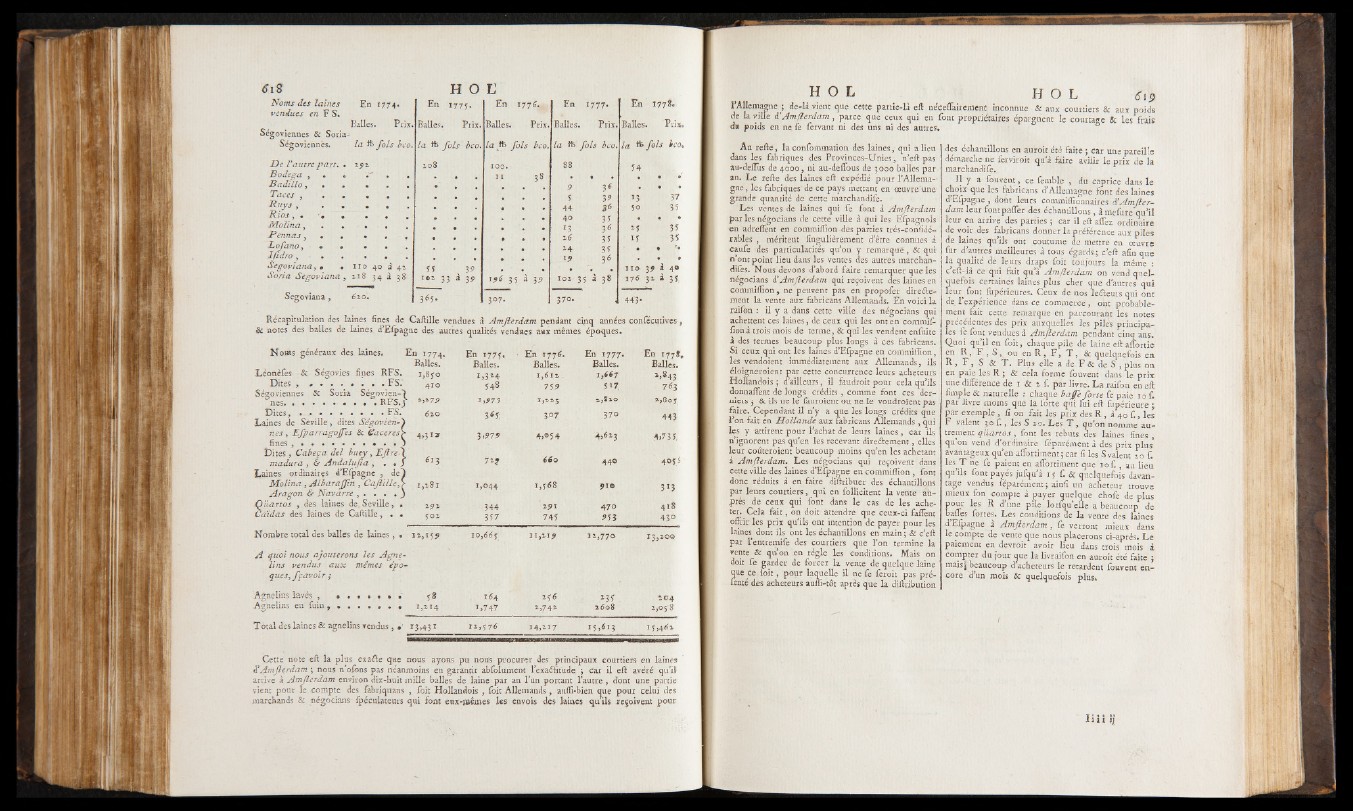 618 H O L
Noms des laines En 1774. En 1775. En 1776. En 1777. En 1778.
vendues en F S.
Balles. Prix. Balles. Prix. Balles. Prix. Balles. Prix. Balles. Prix.
Ségoviennes & Soria-
Ségoviennes. la ℔ ſols bco. la ℔ ſols bco. la ℔ ſols bco. la ℔ ſols bco. la ℔ ſols bco.
De l'autre part. . 292 108 100. 88 54
Bodega , 11 38
Badillo , 9 36
Taces , 5 39 13 37
Ruys , 44 36 50 35
Rios , 40 35
Molina , 13 36 25 35
Pennas , 26 35 15 35
Loſano , 24 35
Iſidro , 19 36
Segoviana , 110 40 à 42 55 39 110 39 à 40
Soria Segoviana , 218 34 à 38 102 33 à 39 196 35 à 39 102 35 à 38 176 32 à 35
Segoviana , 620. 365. 307. 370. 443.
Récapitulation des laines fines de Caſtille vendues à Amſterdam pendant cinq années conſécutives ,
& notes des balles de laines d'Eſpagne des autres qualités vendues aux mêmes époques.
Noms généraux des laines. En 1774. En 1775. En 1776. En 1777. En 1778.
Balles. Balles. Balles. Balles. Balles.
Léonèſes & Ségovies fines RFS. 1,850 1,324 1,612 1,667 2,843
Dites , . . . . . . . FS. 410 548 759 517 763
Ségoviennes & Soria Ségovien-
nes. . . . . . . . . . RFS. 2,279 1,973 1,225 2,820 2,805
Dites, . . . . . . . . . FS. 620 365 307 370 443
Laines de Seville, dites Ségovien-
nes , Eſparragoſſes & Caceres
fines , . . . . . . . . 4,312 3,979 4,054 4,623 4,735
Dites , Cabeça del buey , Eſtre-
madura , & Andaluſia , . . 613 729 660 440 405
Laines ordinaires d'Eſpagne , de
Molina , Albaraſſin , Caſtille,
Aragon & Navarre , . . . . 1,281 1,044 1,568 910 313
Quartos , des laines de Seville, . 292 344 291 470 418
Caïdas des laines de Caſtille, . . 502 357 745 953 450
Nombre total des balles de laines , . 12,159 10,665 11,219 12,770 13,200
A quoi nous ajouterons les Agne-
lins vendus aux mêmes épo-
ques, ſçavoir ;
Agnelins lavés , . . . . . . . 58 164 256 235 204
Agnelins en ſuin, . . . . . . . 1,214 1,747 2,742 2608 2,058
Total des laines & agnelins vendus , . 13,431 12,576 14,217 15,613 15,462
Cette note eſt la plus exacte que nous ayons pu nous procurer des principaux courtiers en laines
d'Amſterdam ; nous n'oſons pas néanmoins en garantir abſolument l'exactitude ; car il eſt avéré qu'il
arrive à Amſterdam environ dix-huit mille balles de laine par an l'un portant l'autre , dont une partie
vient pour le compte des fabriquans , ſoit Hollandois , ſoit Allemands , auſſi-bien que pour celui des
marchands & négocians ſpéculateurs qui ſont eux-mêmes les envois des laines qu'ils reçoivent pour
H O L H O L 619
l'Allemagne ; de-là vient que cette partie-là eſt néceſſairement inconnue & aux courtiers & aux poids
de la ville d'Amſterdam , parce que ceux qui en ſont propriétaires épargnent le courtage & les frais
du poids en ne ſe ſervant ni des uns ni des autres.
Au reſte, la conſommation des laines, qui a lieu
dans les fabriques des Provinces-Unies, n'eſt pas
au-deſſus de 4000, ni au-deſſous de 3000 balles par
an. Le reſte des laines eſt expédié pour l'Allema-
gne, les fabriques de ce pays mettant en œuvre une
grande quantité de cette marchandiſe.
Les ventes de laines qui ſe font à Amſterdam
par les négocians de cette ville à qui les Eſpagnols
en adreſſent en commiſſion des parties très-conſidé-
rables , méritent ſinguliérement d'être connues à
cauſe des particularités qu'on y remarque , & qui
n'ont point lieu dans les ventes des autres marchan-
diſes. Nous devons d'abord faire remarquer que les
négocians d'Amſterdam qui reçoivent des laines en
commiſſion, ne peuvent pas en propoſer directe-
ment la vente aux fabricans Allemands. En voici la
raiſon : il y a dans cette ville des négocians qui
achettent ces laines, de ceux qui les ont en commiſ-
ſion à trois mois de terme, & qui les vendent enſuite
à des termes beaucoup plus longs à ces fabricans.
Si ceux qui ont les laines d'Eſpagne en commiſſion,
les vendoient immédiatement aux Allemands, ils
éloigneroient par cette concurrence leurs acheteurs
Hollandois ; d'ailleurs , il faudroit pour cela qu'ils
donnaſſent de longs crédits , comme font ces der-
niers , & ils ne le ſauroient ou ne le voudroient pas
faire. Cependant il n'y a que les longs crédits que
l'on fait en Hollande aux fabricans Allemands , qui
les y attirent pour l'achat de leurs laines , car ils
n'ignorent pas qu'en les recevant directement , elles
leur coûteroient beaucoup moins qu'en les achetant
à Amſterdam. Les négocians qui reçoivent dans
cette ville des laines d'Eſpagne en commiſſion, ſont
donc réduits à en faire diſtribuer des échantillons
par leurs courtiers, qui en ſollicitent la vente au-
près de ceux qui ſont dans le cas de les ache-
ter. Cela fait , on doit attendre que ceux-ci faſſent
offrir les prix qu'ils ont intention de payer pour les
laines dont ils ont les échantillons en main; & c'eſt
par l'entremiſe des courtiers que l'on termine la
vente & qu'on en régle les conditions. Mais on
doit ſe garder de forcer la vente de quelque laine
que ce ſoit, pour laquelle il ne ſe ſeroit pas pré-
ſenté des acheteurs auſſi-tôt après que la diſtribution
des échantillons en auroit été faite ; car une pareille
démarche ne ſerviroit qu'à faire avilir le prix de la
marchandiſe.
Il y a ſouvent , ce ſemble , du caprice dans le
choix que les fabricans d'Allemagne font des laines
d'Eſpagne , dont leurs commiſſionnaires d'Amſter-
dam leur font paſſer des échantillons , à meſure qu'il
leur en arrive des parties ; car il eſt aſſez ordinaire
de voir des fabricans donner la préférence aux piles
de laines qu'ils ont coutume de mettre en œuvre
ſur d'autres meilleures à tous égards ; c'eſt afin que
la qualité de leurs draps ſoit toujours la même :
c'eſt-là ce qui fait qu'à Amſterdam on vend quel-
quefois certaines laines plus cher que d'autres qui
leur ſont ſupérieures. Ceux de nos lecteurs qui ont
de l'expérience dans ce commerce , ont probable-
ment fait cette remarque en parcourant les notes
précédentes des prix auxquelles les piles principa-
les ſe ſont vendues à Amſterdam pendant cinq ans.
Quoi qu'il en ſoit, chaque pile de laine eſt aſſortie
en R , F , S , ou en R , F , T , & quelquefois en
R , F , S & T. Plus elle a de F & de S , plus on
en paie les R ; & cela forme ſouvent dans le prix
une différence de 1 & 2 ſ. par livre. La raiſon en eſt
ſimple & naturelle : chaque baſſe ſorte ſe paie 10 ſ.
par livre moins que la ſorte qui lui eſt ſupérieure ;
par exemple , ſi on fait les prix des R , à 40 ſ., les
F valent 30 ſ. , les S 20. Les T , qu'on nomme au-
trement quartos , ſont les rebuts des laines fines ,
qu'on vend d'ordinaire ſéparément à des prix plus
avantageux qu'en aſſortiment ; car ſi les S valent 20 ſ.
les T ne ſe paient en aſſortiment que 10 ſ. , au lieu
qu'ils ſont payés juſqu'à 15 ſ. & quelquefois davan-
tage vendus ſéparément ; ainſi un acheteur trouve
mieux ſon compte à payer quelque choſe de plus
pour les R d'une pile lorſqu'elle a beaucoup de
baſſes ſortes. Les conditions de la vente des laines
d'Eſpagne à Amſterdam , ſe verront mieux dans
le compte de vente que nous placerons ci-après. Le
paiement en devroit avoir lieu dans trois mois à
compter du jour que la livraiſon en auroit été faite ;
mais beaucoup d'acheteurs le retardent ſouvent en-
core d'un mois & quelquefois plus.
Iiii ij